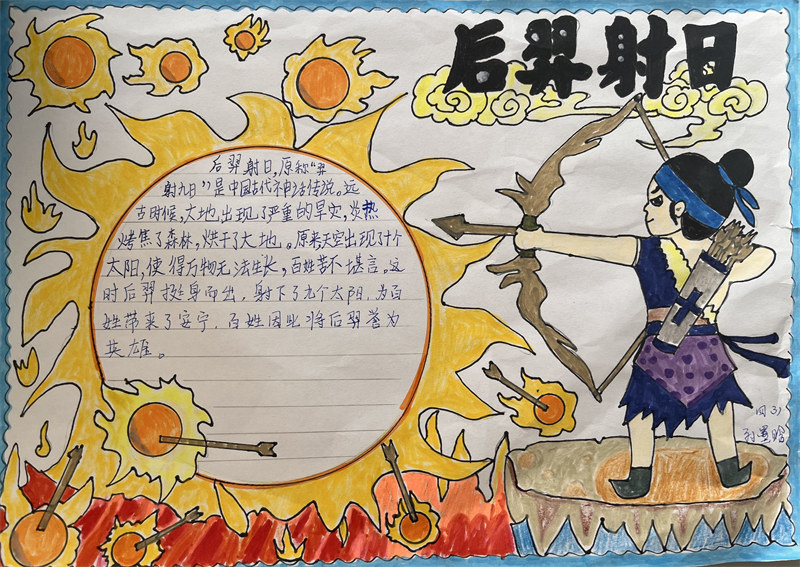 后羿射日
后羿射日,原称“羿
射九日”是中国古代神话传说。远
古时候,大地出现了严重的旱灾,炎热
烤焦了森林,烘干了大地。原来天空出现了十个
太阳,使得万物无法生长,百姓苦不堪言。这
时后羿挺身而出,射下了九个太阳,为百
姓带来了安宁,百姓因此将后羿誉为
英雄。
四3)